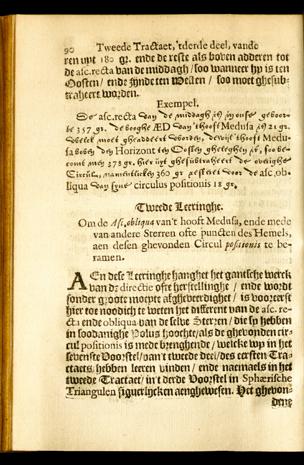 90 Tweede Tractaet, 'tderde deel, vande
ren upt 180 gr. ende de reste als boven adderen tot
de asc. recta van de middagh / soo wanneer hy is ten
Oosten / ende zijnde ten Westen / soo moet ghesub-
traheert worden.
Exempel.
De asc. recta van de middagh in onse geboor-
te 357 gr. de booghe ÆD van 't hooft Medusa is 21 gr.
welck moet gheaddeert worden, dewijl 't hooft Medu-
sa boven den Horizont ten Oosten gheleghen is, soo be-
comt men 378 gr. hier uyt ghesubtraheert de
Circul, namentlicken 360 gr. resteert voor de asc. ob-
liqua van syne circulus positionis 18 gr.
Tweede Leeringhe.
Om de Asc. obliqua van't hooft Medusa, ende mede
van andere Sterren ofte puncten des Hemels,
aen desen ghevonden Circul positionis te be-
ramen.
AEn dese Leeringe hanghet het gantsche werck
van der directie ofte herstellinghe / ende wordt
sonder groote moeyte afgheveerdight / is voor eerst
hier toe noodich te weten het different van de asc. re-
cta ende obliqua van de selve Sterren / die sy hebben
in soodanighe Polus hoochte / als de ghevonden cir-
cul positionis is mede brenghende / welcke wy in het
sevenste Voorstel / van't tweede deel / des eersten Trac-
taets / hebben leeren vinden / ende naemaels in het
tweede Tractaet / in't derde Voorstel in Sphærische
Triangulen figuerlijcken aenghewesen. Het ghevon-
dene